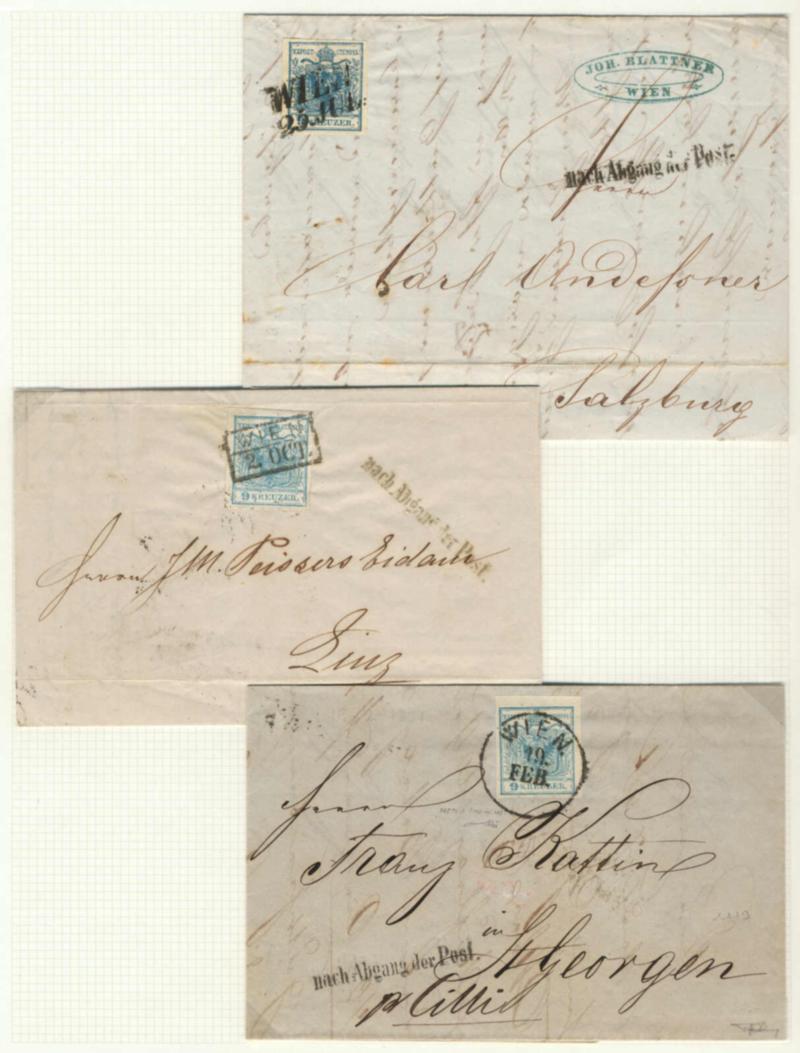 WIEN
25. JUL.
KREUZER.
JOH. BLATTNER
WIEN
nach Abgang der Post.
Herrn
Carl Andesoner
Salzburg
WIEN
2. OCT.
9 KREUZER.
nach Abgang der Post.
Herrn J. M. Peissers Eidam
Linz
WIEN.
19.
FEB.
9 KREUZER.
Herrn
Franz Kattin
in
St Georgen
nach Abgang der Post.
pr Cilli